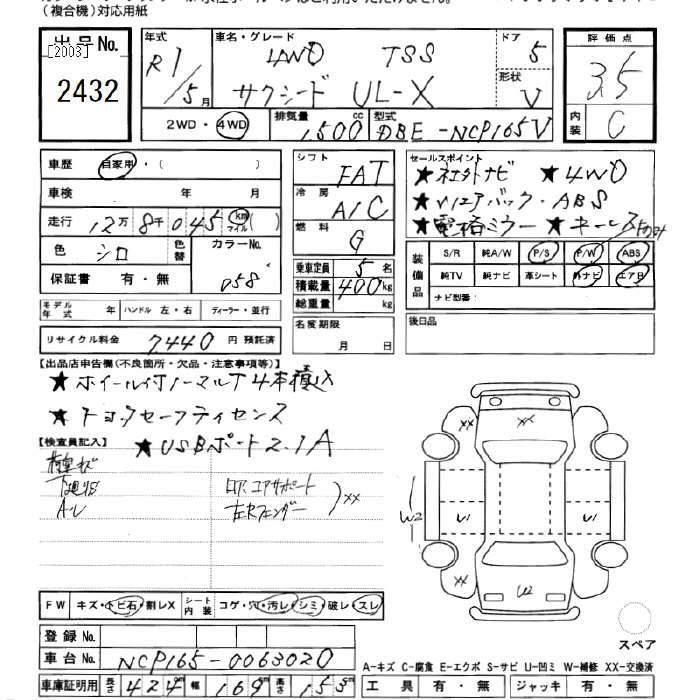 （複合機）対応用紙
出品 No.
[2003]
2432
年式
R1/5月
車名・グレード
4WD TSS
サクシード UL-X
ドア 5
形状 V
2WD・4WD
排気量 1500 cc
型式 DBE-NCP165V
評価点
3.5
内装 C
車歴 自家用・（ ）
車検 年 月
走行 12万8千045 km マイル（ ）
色 シロ
色替
カラーNo. 058
保証書 有・無
シフト FAT
冷房 A/C
燃料 G
乗車定員 5名
積載量 400kg
総重量 kg
セールスポイント
★社外ナビ ★4WD
★Vエアバック・ABS
★電格ミラー ★キーレス
装備品
S/R 純A/W P/S P/W ABS
純TV 純ナビ 革シート 外ナビ エアB
ナビ型番：
モデル年式 年 ハンドル 左・右 ディーラー・並行
リサイクル料金 7,440 円 預託済
名変期限
月 日
後日品
【出品店申告欄(不良箇所・欠品・注意事項等)】
★ホイール付ノーマルT4本積込
★トヨタセーフティセンス
★USBポート2.1A
【検査員記入】
下廻りサビ
ロアコアサポート
左右フェンダー
XX
XX
W2
U1
U1
XX
U2
XX
FW キズ・トビ石・割レX
シート内装 コゲ・穴・汚レ・シミ・破レ・スレ
スペア
登録 No.
車台 No. NCP165-0063020
車庫証明用 長さ 424cm 幅 169cm 高さ 153cm
A-キズ C-腐食 E-エクボ S-サビ U-凹ミ W-補修 XX-交換済
工具 有・無 ジャッキ 有・無